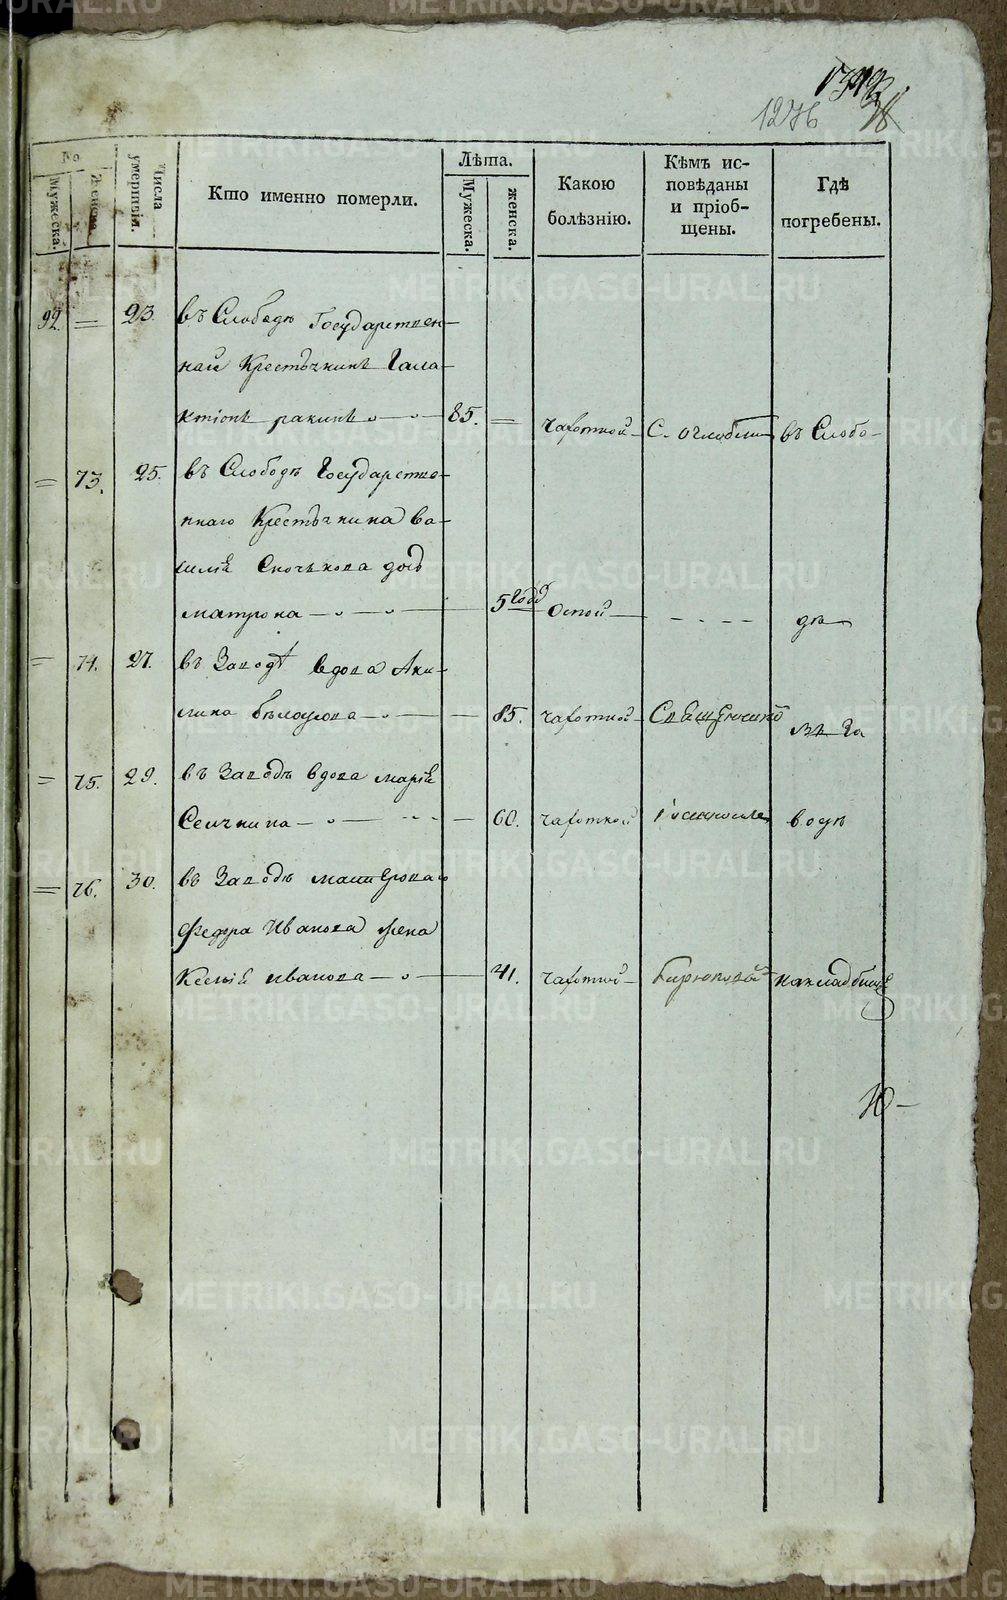 1276
No
Мужеска.
Женска.
Числа
умертвія.
Кто именно померли.
Лѣта.
Мужеска.
женска.
Какою
болѣзнію.
Кѣмъ ис-
повѣданы
и пріоб-
щены.
Гдѣ
погребены.
92. = 23. въ Слободѣ Государствен-
ной Крестьянинъ Гала-
ктіонъ ракинъ 85. = чахоткой С. въ Слобо-
= 73. 25. въ Слободѣ Государстве-
ннаго Крестьянина ва-
силія дочь
матрона 5 годъ Оспой дѣ
= 74. 27. въ Заводѣ вдова Аки-
лина бѣлоусова 85. чахоткой Священникъ въ За
= 75. 29. въ Заводѣ вдова марія
60. чахоткой водѣ
= 76. 30. въ Заводѣ мастероваго
Федора Иванова жена
Ксенія иванова 41. чахоткой Бирюковъ на кладбищѣ
METRIKI.GASO-URAL.RU